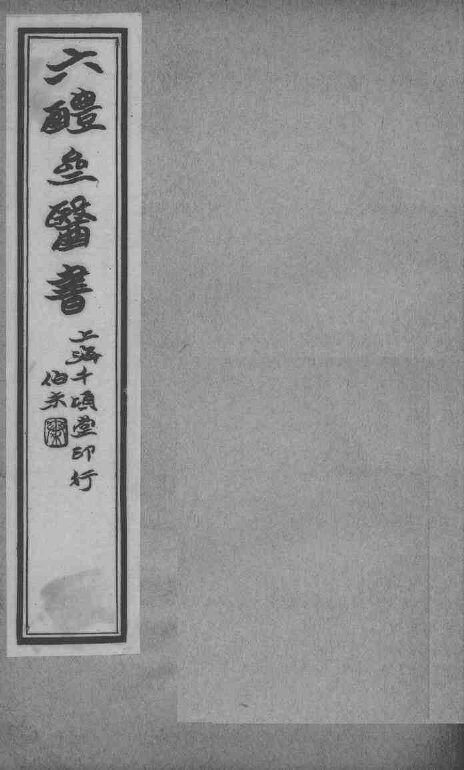 六醴亝醫書
上海千頃堂印行
伯未